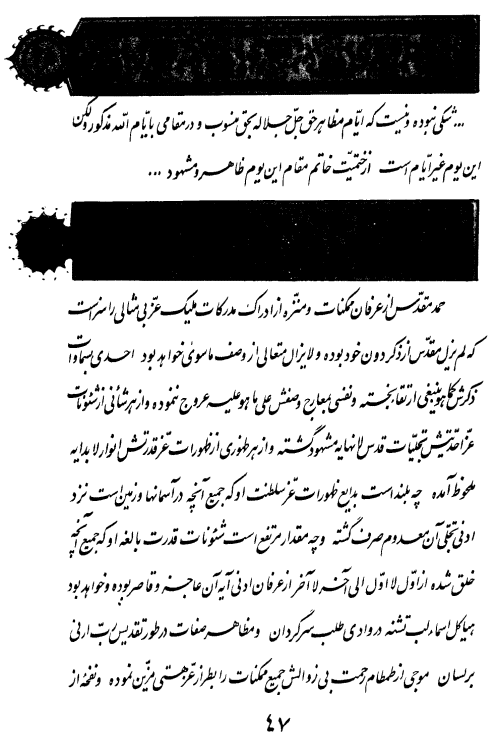 ... شکی نبوده و نیست که ایّام مظاهر حق جلّ جلاله بحق منسوب و در مقامی بایّام الله مذکور ولکن
این یوم غیر ایّام است از ختمیّت خاتم مقام این یوم ظاهر و مشهود ...
حمد مقدّس از عرفان ممکنات و منزّه از ادراک مدرکات ملیک عزّ بی مثالی را سزاست
که لم یزل مقدّس از ذکر دون خود بوده و لایزال متعالی از وصف ماسوی خواهد بود احدی بسماوات
ذکرش کما هو ینبغی ارتقاء نجسته و نفسی بمعارج وصفش علی ما هو علیه عروج ننموده و از هر شأنی از شئونات
عزّ احدیّتش تجلّیات قدس لانهایه مشهود گشته و از هر ظهوری از ظهورات عزّ قدرتش انوار لا بدایه
ملحوظ آمده چه بلند است بدایع ظهورات عزّ سلطنت او که جمیع آنچه در آسمانها و زمین است نزد
ادنی تجلّی آن معدوم صرف گشته و چه مقدار مرتفع است شئونات قدرت بالغه او که جمیع آنچه
خلق شده از اوّل لا اوّل الی آخر لا آخر از عرفان ادنی آیه آن عاجز و قاصر بوده و خواهد بود
هیاکل اسماء لب تشنه در وادی طلب سرگردان و مظاهر صفات در طور تقدیس ربّ ارنی
بر لسان موجی از طمطام رحمت بی زوالش جمیع ممکنات را بطراز عزّ هستی مزیّن نموده و نفحهٔ از
۴۷